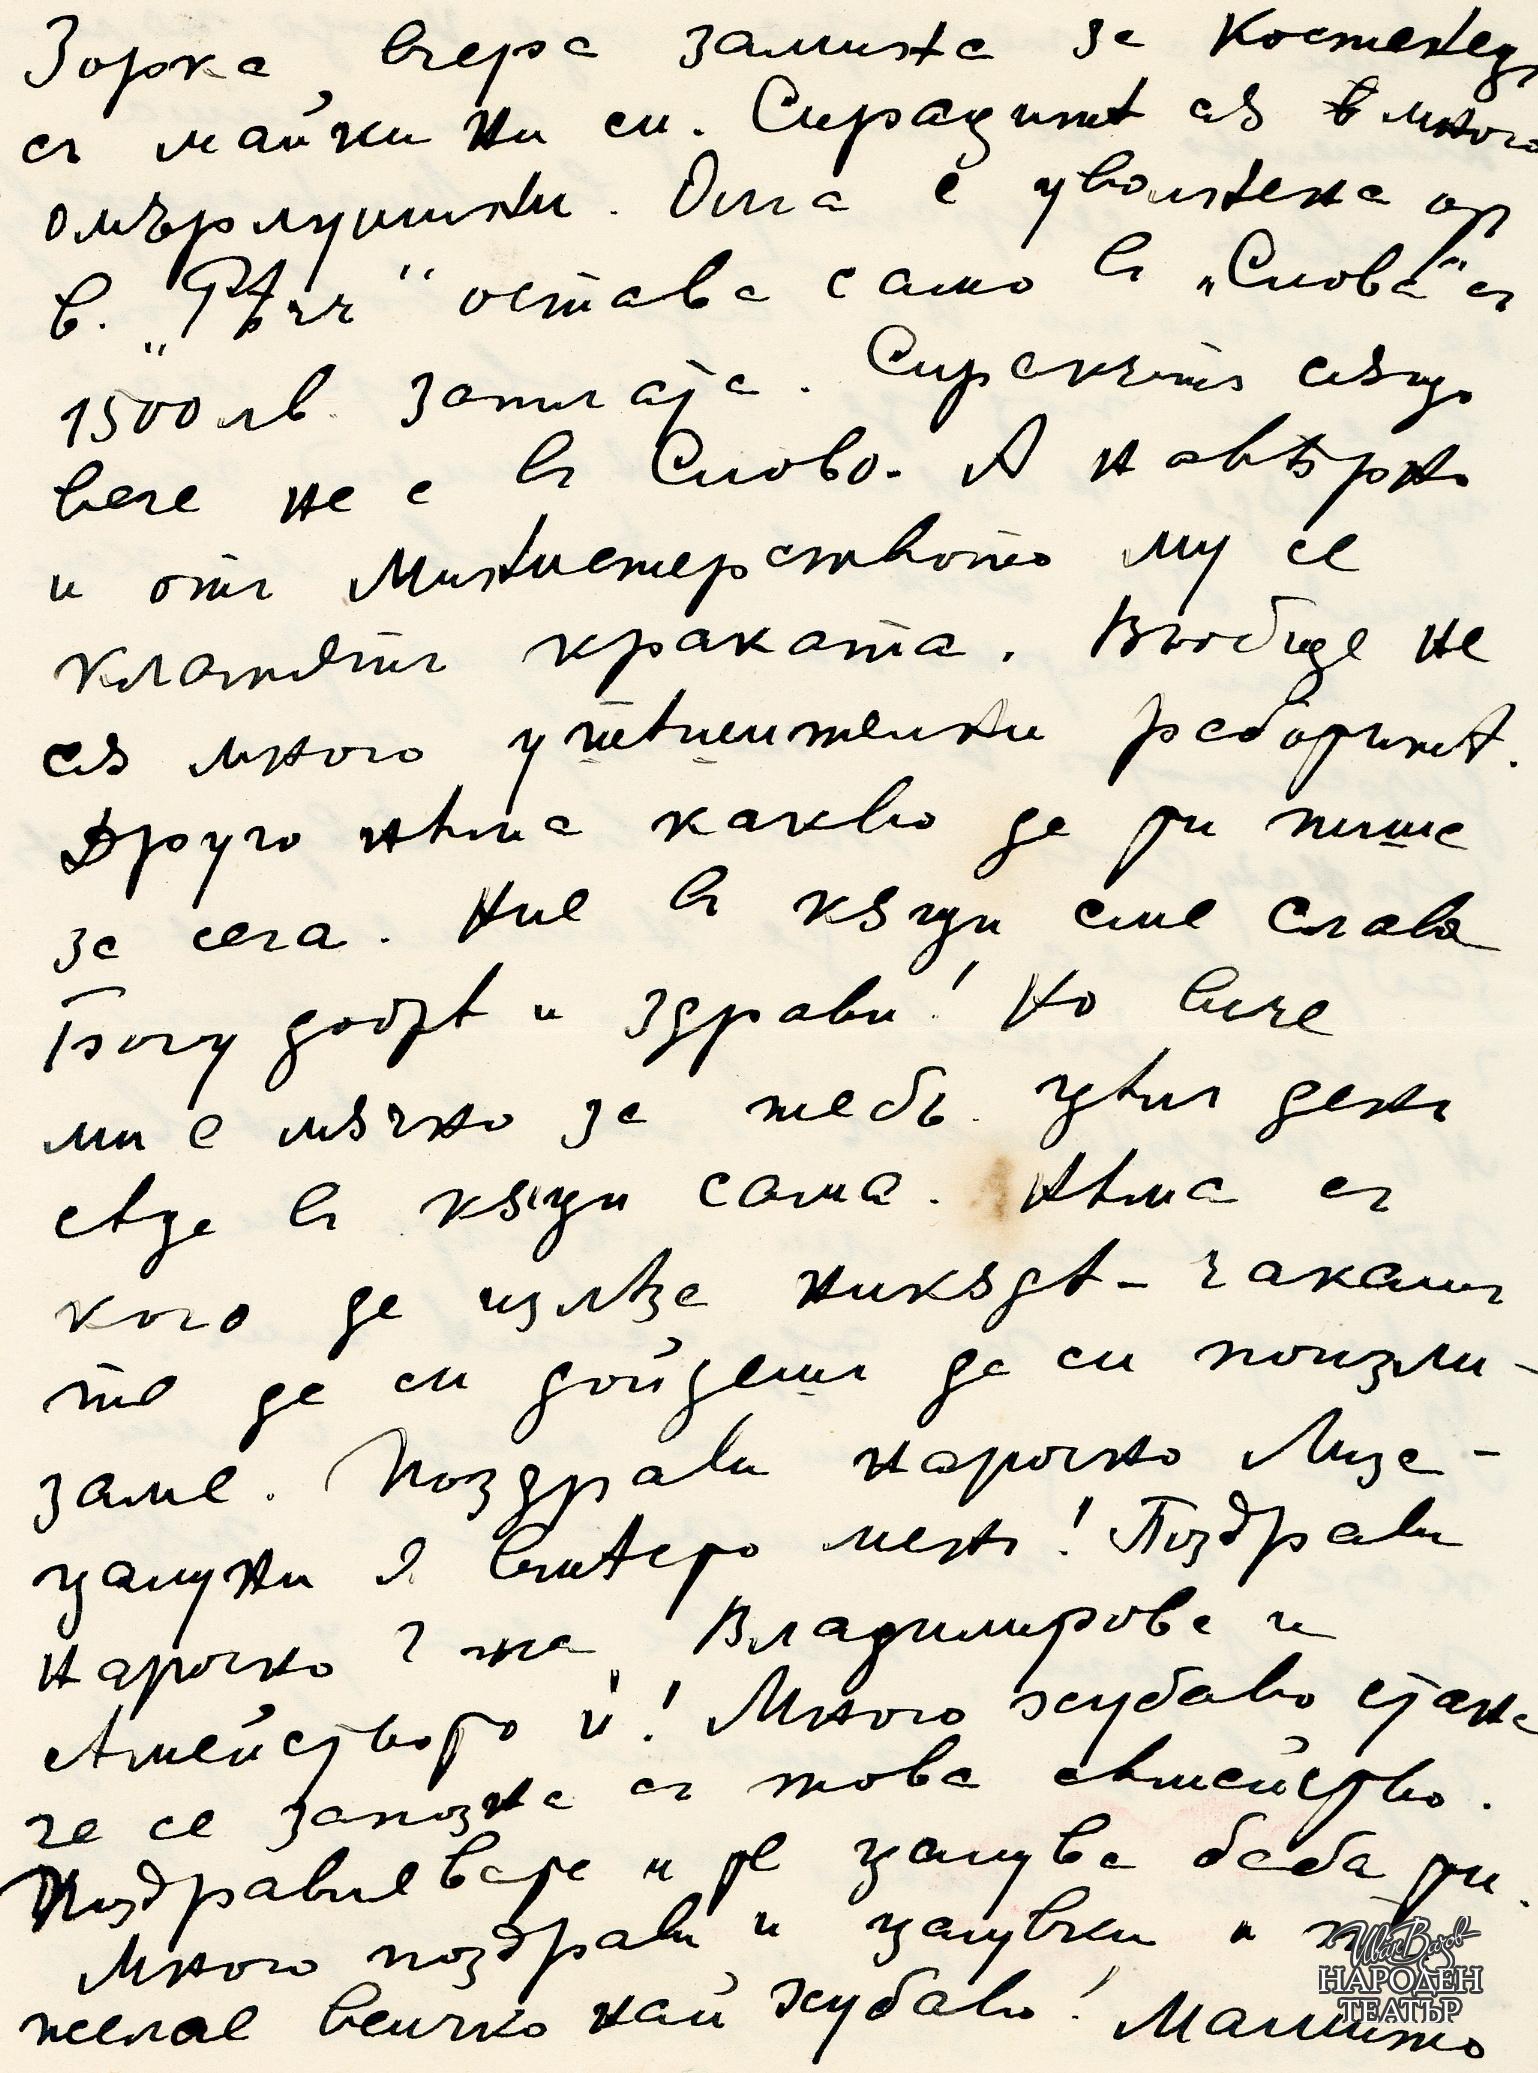 Зорка вчера замина за Костенецъ
съ майки ни си. Сирацитѣ сѫ много
омърлушени. Олга е уволнена от
в. „Рѣчъ“ остава само въ „Слова“ съ
1500 лв. заплата. Сиракътъ сѫщо
вече не е въ Слово. А навѣрно
и отъ Министерството му се
клатятъ краката. Въобще не
сѫ много утѣшителни работитѣ.
Друго нѣма какво да ти пиша
за сега. Ние въ кѫщи сме слава
Богу добрѣ и здрави! Но вече
ми е мѫчно за тебъ. Цѣлъ день
сѣдя въ кѫщи сама. Нѣма съ
кого да излѣза никѫдѣ – чакамъ
те да си дойдешъ да си поизли-
заме. Поздрави нарочно Лиза –
цалуни я вмѣсто менъ! Поздрави
нарочно г жа Владимирова и
сѣмейството ѝ! Много хубаво стана
че се запозна съ това сѣмейство.
Поздравлевате и те цалува баба ти.
Много поздрави и цалувки и ти
желае всичко най хубаво! Мамито
НАРОДЕН
ТЕАТЪР